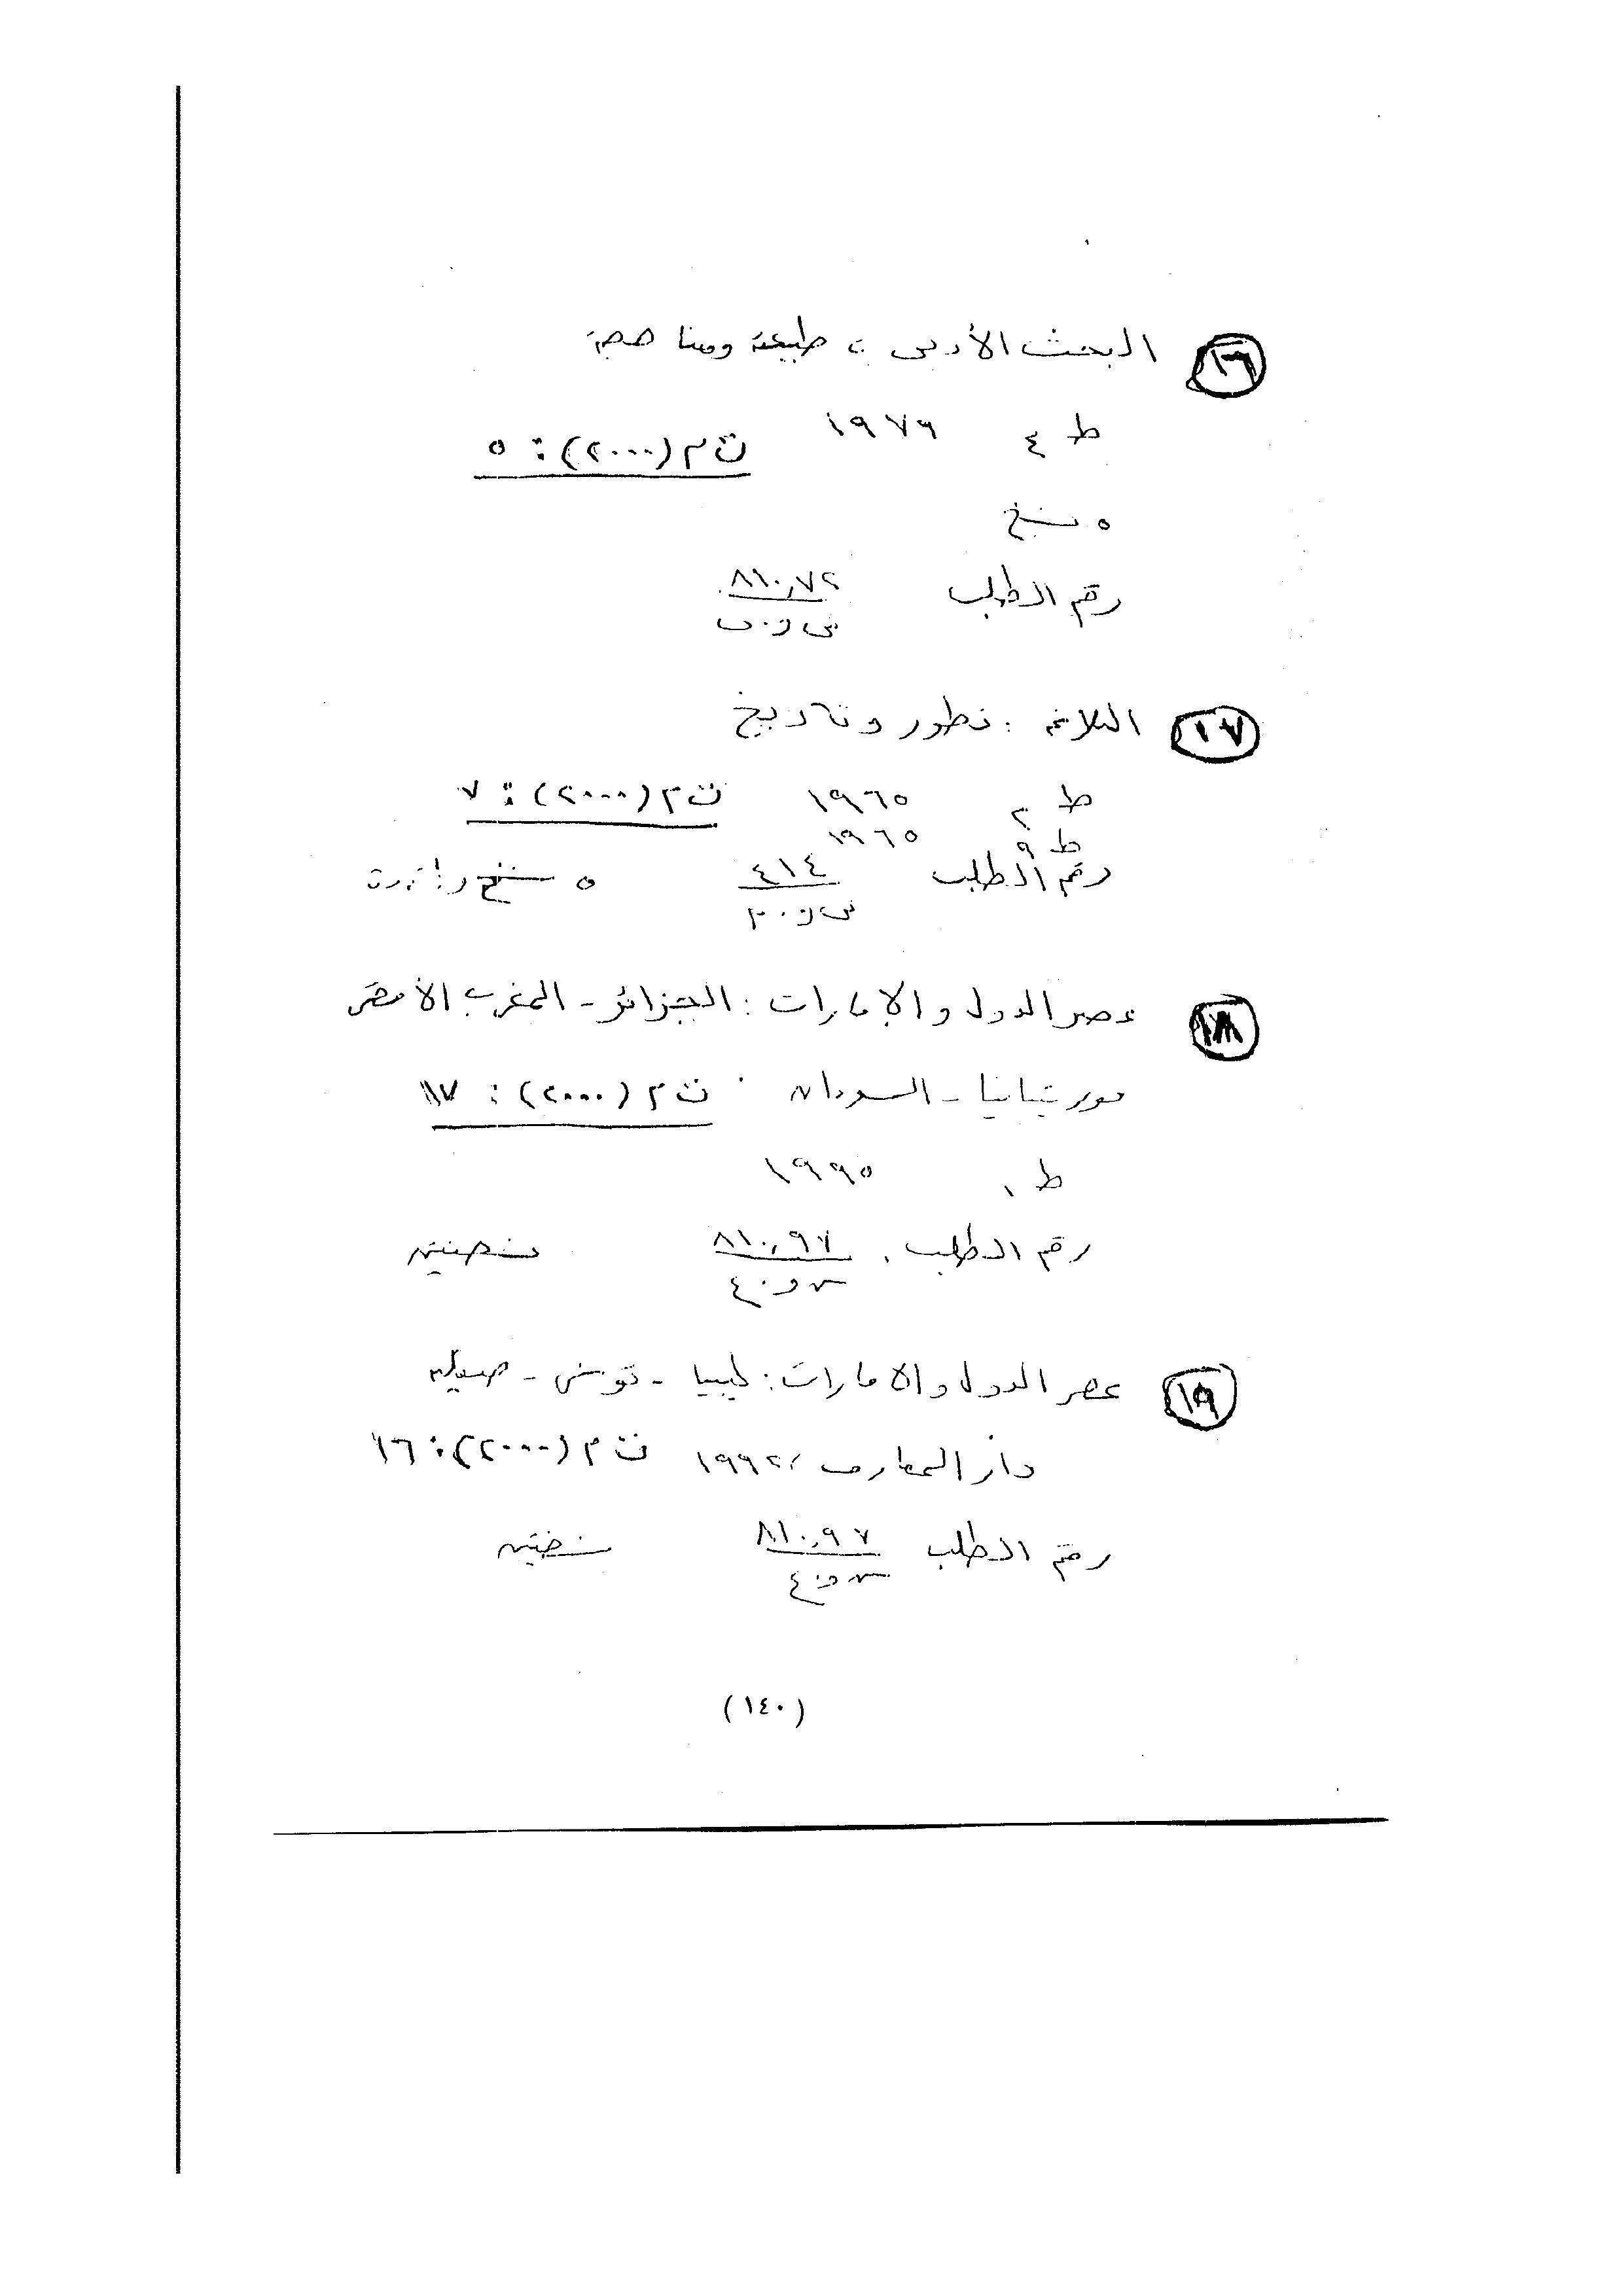 ١٦ البحث الأدبى : طبيعته ومناهجه
ط ٤ ١٩٧٦ ت م (٢٠٠٠) : ٥
٥ نسخ
رقم الطلب ٨١٠,٧٢
ش و . ب
١٧ البلاغه : تطور وتاريخ
ط ٢ ١٩٦٥ ت م (٢٠٠٠) : ٧
ط ٩ ١٩٦٥
رقم الطلب ٤١٤ ٥ نسخ
١٨ عصر الدول والإمارات : الجزائر - المغرب الأقصى
موريتانيا - السودان ت م (٢٠٠٠) : ١٧
ط ١ ١٩٩٥
رقم الطلب ٨١٠,٩٧ نسختين
ش و . ع
١٩ عصر الدول والامارات : ليبيا - تونس - صقليه
دار المعارف ١٩٩٢ ت م (٢٠٠٠) : ١٦
رقم الطلب ٨١٠,٩٧ نسختين
ش و . ع
(١٤٠)